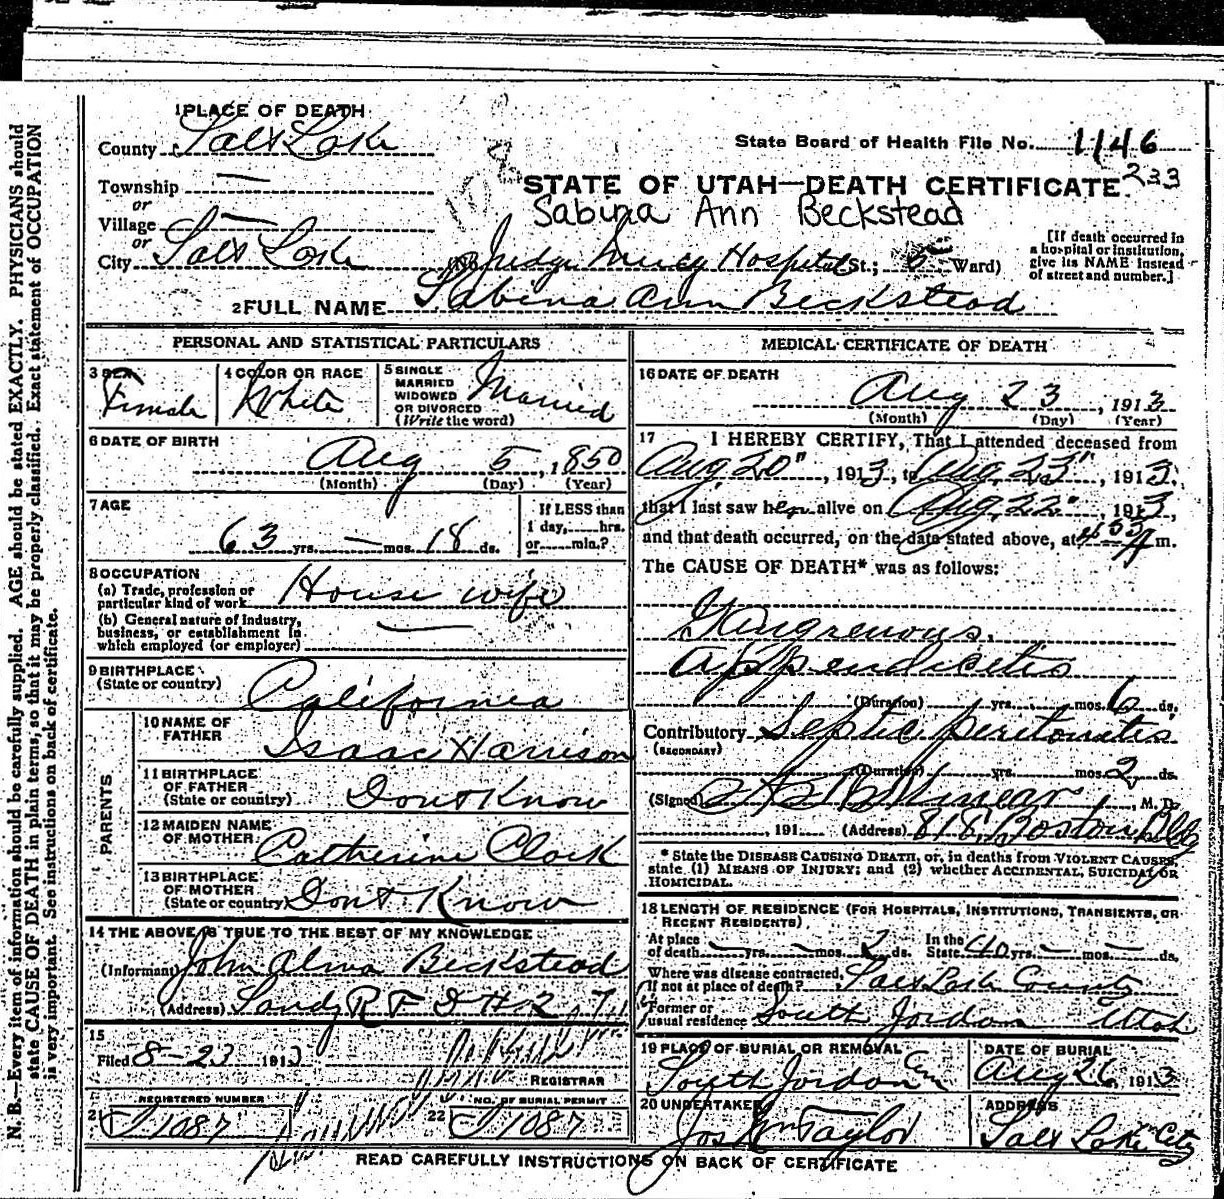 1 PLACE OF DEATH
County Salt Lake
State Board of Health File No. 1146
Township —
or
STATE OF UTAH—DEATH CERTIFICATE 233
Sabina Ann Beckstead
Village —
or
City Salt Lake
Judge Mercy Hospital St.; Ward)
[If death occurred in
a hospital or institution,
give its NAME instead
of street and number.]
2 FULL NAME Sabina Ann Beckstead
PERSONAL AND STATISTICAL PARTICULARS
3 SEX
Female
4 COLOR OR RACE
White
5 SINGLE
MARRIED
WIDOWED
OR DIVORCED
(Write the word)
Married
6 DATE OF BIRTH
Aug 5, 1850
(Month) (Day) (Year)
7 AGE
63 yrs. — mos. 18 ds.
If LESS than
1 day, hrs.
or min.?
8 OCCUPATION
(a) Trade, profession or
particular kind of work House wife
(b) General nature of industry,
business, or establishment in
which employed (or employer) —
9 BIRTHPLACE
(State or country)
California
PARENTS
10 NAME OF
FATHER
Isaac Harrison
11 BIRTHPLACE
OF FATHER
(State or country) Dont Know
12 MAIDEN NAME
OF MOTHER
Catherine Clark
13 BIRTHPLACE
OF MOTHER
(State or country) Dont Know
14 THE ABOVE IS TRUE TO THE BEST OF MY KNOWLEDGE
(Informant) John Alma Beckstead
(Address) Sandy R F D # 2
15
Filed 8-23 1913
REGISTRAR
21 REGISTERED NUMBER
J 1087
22 NO. OF BURIAL PERMIT
J 1087
MEDICAL CERTIFICATE OF DEATH
16 DATE OF DEATH
Aug 23, 1913
(Month) (Day) (Year)
17 I HEREBY CERTIFY, That I attended deceased from
Aug. 20", 1913, to Aug. 23", 1913,
that I last saw her alive on Aug. 22", 1913,
and that death occurred, on the date stated above, at A m.
The CAUSE OF DEATH* was as follows:
Gangrenous
appendicitis
(Duration) yrs. mos. 6 ds.
Contributory Septic peritonitis
(SECONDARY)
(Duration) yrs. mos. 2 ds.
(Signed) M. D.
, 191 (Address) 818 Boston Bldg
* State the DISEASE CAUSING DEATH, or, in deaths from VIOLENT CAUSES,
state (1) MEANS OF INJURY; and (2) whether ACCIDENTAL, SUICIDAL OR
HOMICIDAL.
18 LENGTH OF RESIDENCE (FOR HOSPITALS, INSTITUTIONS, TRANSIENTS, OR
RECENT RESIDENTS)
At place
of death — yrs. — mos. 2 ds.
In the
State 40 yrs. — mos. — ds.
Where was disease contracted,
if not at place of death? Salt Lake County
Former or
usual residence South Jordan Utah
19 PLACE OF BURIAL OR REMOVAL
South Jordan Cem
DATE OF BURIAL
Aug 26 1913
20 UNDERTAKER
Jos Wm Taylor
ADDRESS
Salt Lake City
READ CAREFULLY INSTRUCTIONS ON BACK OF CERTIFICATE
N. B.—Every item of information should be carefully supplied. AGE should be stated EXACTLY. PHYSICIANS should
state CAUSE OF DEATH in plain terms, so that it may be properly classified. Exact statement of OCCUPATION
is very important. See instructions on back of certificate.